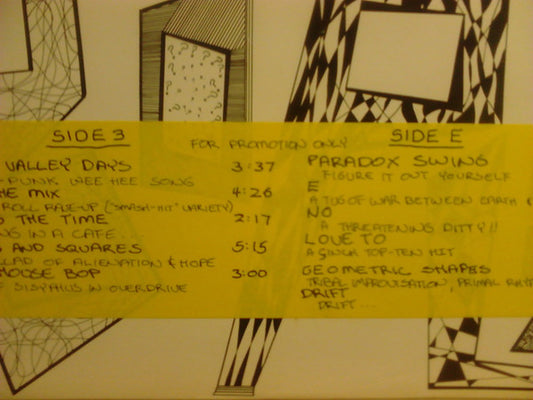 SIDE 3
FOR PROMOTION ONLY
VALLEY DAYS 3:37
-PUNK WEE HEE SONG
HE MIX 4:26
ROLL RAVE-UP ("SMASH-HIT" VARIETY)
THE TIME 2:17
NG IN A CAFE.
AND SQUARES 5:15
LAD OF ALIENATION & HOPE
MOOSE BOP 3:00
F SISPHUS IN OVERDRIVE
SIDE E
PARADOX SWING
FIGURE IT OUT YOURSELF
E
A TUG OF WAR BETWEEN EARTH &
NO
A THREATENING DITTY!!
LOVE TO
A SINCH TOP-TEN HIT
GEOMETRIC SHAPES
TRIBAL IMPROVISATION, PRIMAL RHY
DRIFT
DRIFT ...